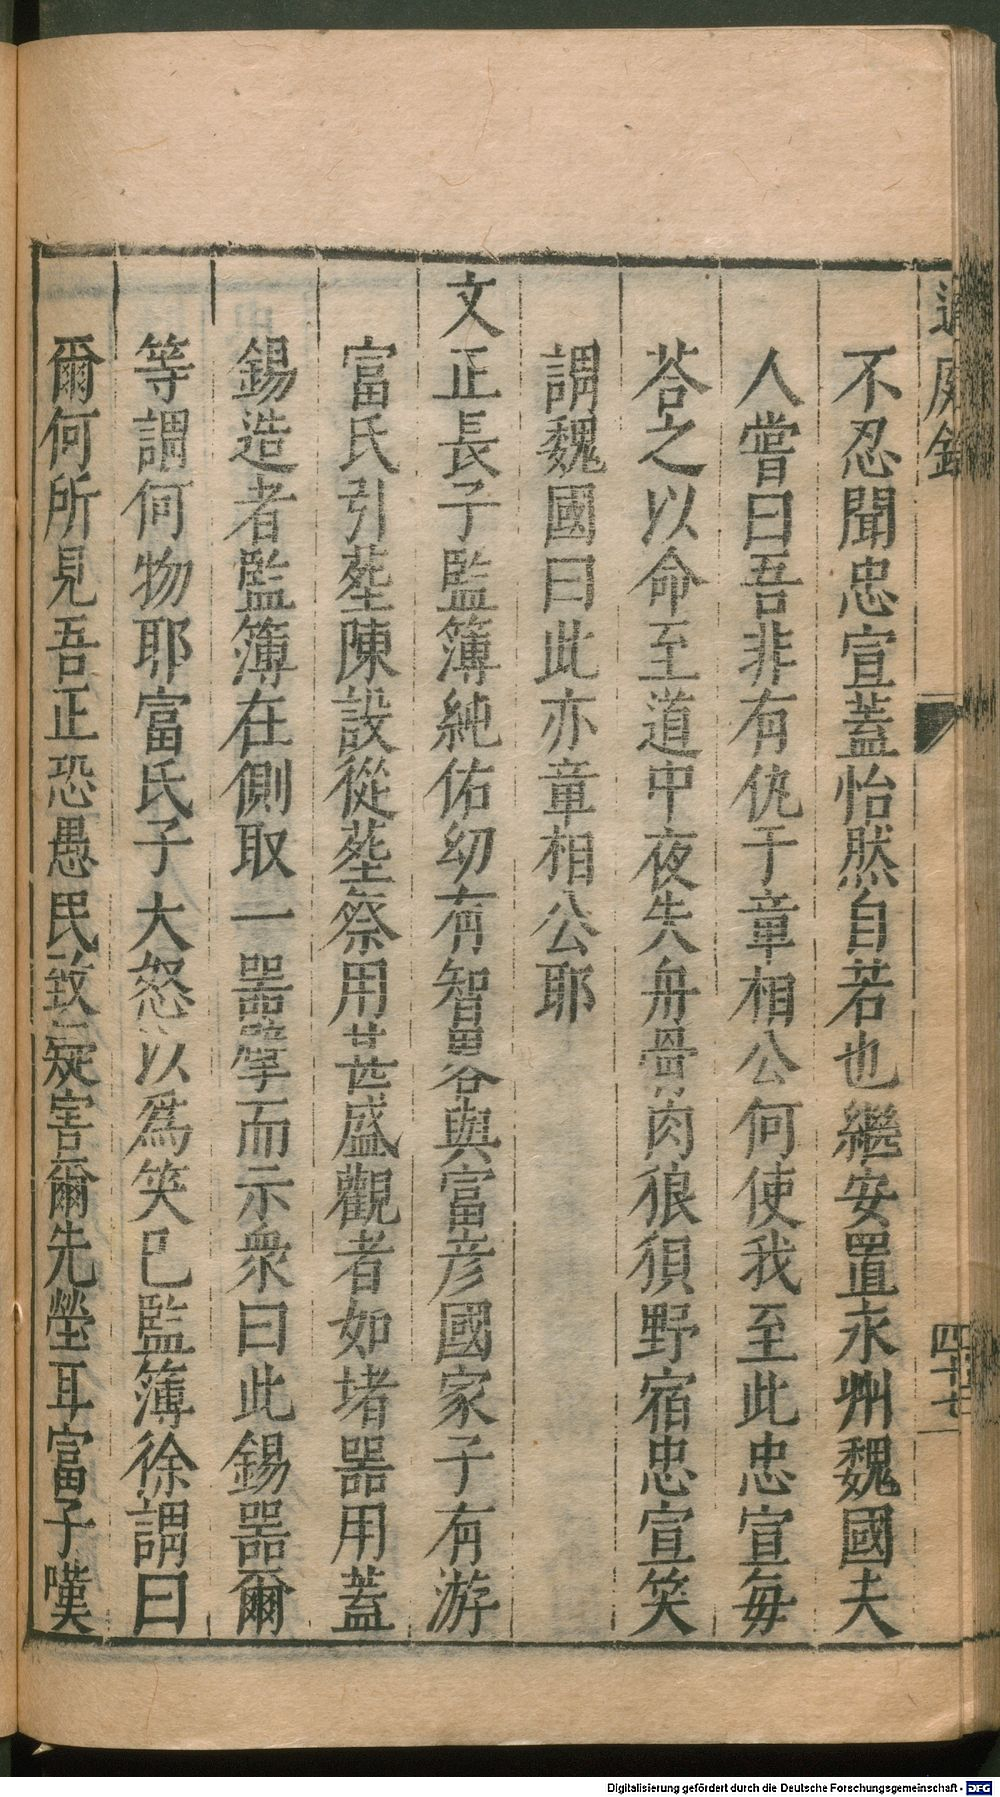 過庭錄
四十七
不忍聞忠宣蓋怡然自若也繼安置永州魏國夫
人嘗曰吾非有仇于章相公何使我至此忠宣每
荅之以命至道中夜失舟骨肉狼狽野宿忠宣笑
謂魏國曰此亦章相公耶
文正長子監簿純佑幼有智畧容與富彦國家子有游
富氏引塟陳設從塟祭用甚盛觀者如堵器用蓋
錫造者監簿在側取一器擘而示衆曰此錫器爾
等謂何物耶富氏子大怒以爲笑已監簿徐謂曰
爾何所見吾正恐愚民致疑害爾先塋耳富子嘆
Digitalisierung gefördert durch die Deutsche Forschungsgemeinschaft - DFG